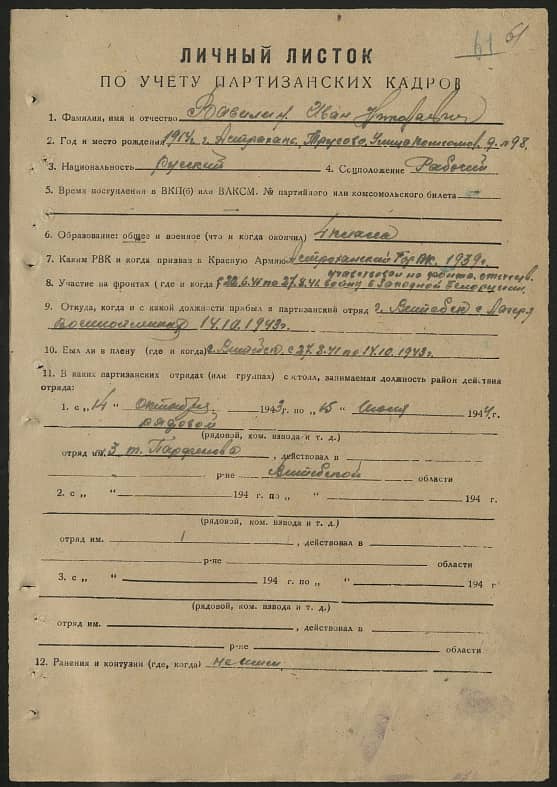 61 61
ЛИЧНЫЙ ЛИСТОК
ПО УЧЕТУ ПАРТИЗАНСКИХ КАДРОВ
1. Фамилия, имя и отчество Иван
2. Год и место рождения 1914 г. Астрахань, Трусово, Улица д. № 98.
3. Национальность Русский 4. Соцположение Рабочий
5. Время поступления в ВКП(б) или ВЛКСМ. № партийного или комсомольского билета —
6. Образование: общее и военное (что и когда окончил) 4 класса
7. Каким РВК и когда призван в Красную Армию Астраханский ГорВК. 1939 г.
участвовал на фронте отечеств.
8. Участие на фронтах (где и когда) с 22.6.41 по 27.8.41. войну в Западной Белоруссии.
9. Откуда, когда и с какой должности прибыл в партизанский отряд г. Витебск с Лагеря
военнопленных 14.10.1943 г.
10. Был ли в плену (где и когда) г. Витебск с 27.8.41 по 14.10.1943 г.
11. В каких партизанских отрядах (или группах) состоял, занимаемая должность район действия
отряда:
1. с „14 " октября 1943 г. по „15 " июня 1944 г.
рядовой
(рядовой, ком. взвода и т. д.)
отряд № 3 т. Парфенова, действовал в
р-не Витебской области
2. с „ " 194 г. по „ " 194 г.
(рядовой, ком. взвода и т. д.)
отряд им. , действовал в
р-не области
3. с „ " 194 г. по „ " 194 г.
(рядовой, ком. взвода и т. д.)
отряд им. , действовал в
р-не области
12. Ранения и контузии (где, когда) не имел